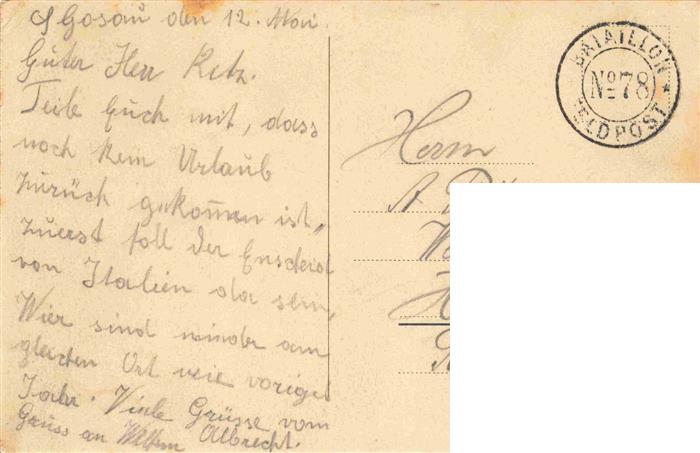 Gosau den 12. Mai
Guter Herr Retz.
Teile Euch mit, dass
noch kein Urlaub
zurück gekommen ist,
zuerst soll der Enscheid
von Italien da sein,
Wier sind wieder am
gleichen Ort wie voriges
Jahr. Viele Grüsse vom
Gruss an Albrecht.
Herrn
A
BATAILLON
No 78
FELDPOST